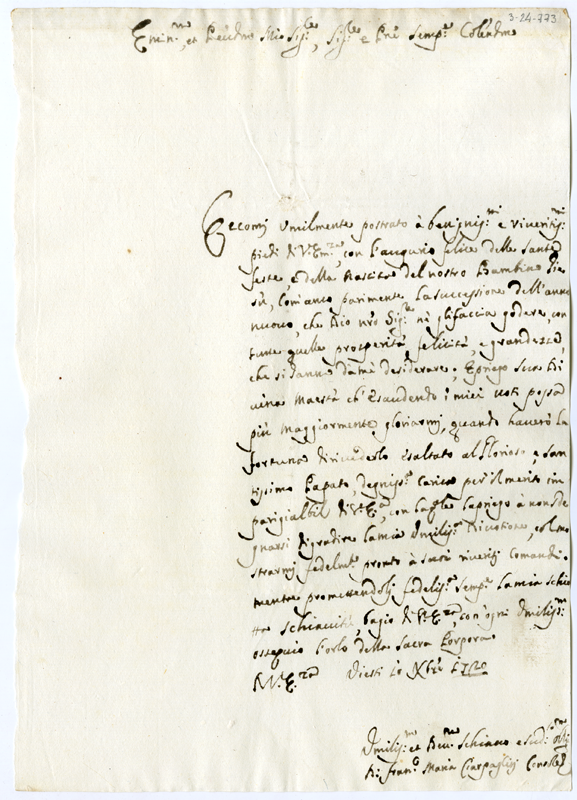 3-24-773
Emin.mo et Revdmo Mio Sig.re, Sig.re e Prōn Semp.e Colendmo
Eccomj Umilmente postrato à benignis.mi e riveritis.mi
piedi di V. Em.za con l'augurio felice delle Sante
feste, e della Nascita del nostro Bambino Gie
sù, com'anco parimente la successione dell'anno
nuovo, che Dio nrō Sig.re nè gli faccia godere, con
tutte quelle prosperità, felicità, e grandezze,
che si sanno da me desiderare; E priego Sua Di
vina Maestà ch'Esaudendo i miei voti possa
più maggiormente gloriarmj, quando haverò la
fortuna di rivederlo esaltato al Glorioso, e San
tissimo Papato, degniss.a carica per il merito im
parigiabbil di V. E.za, con la q̄le la priego à non sde
gnarsi di gradire la mia Umilis.a divotione, col mo
strarmj fedelm.te pronto à suoi riveriti Comandi.
mentre promettendoli fedelis.a semp.e la mia schie
tta schiavitù, bagio di V. E.za, con ogni Umilis.mo
ossequio l'orlo della Sacra Porpora
D V. E.za Viesti 10 Xbre 1720
Umilis.mo et Dev.mo Schiavo e Ser.re obl.mo
Di Fran.co Maria Ciarpaglinj